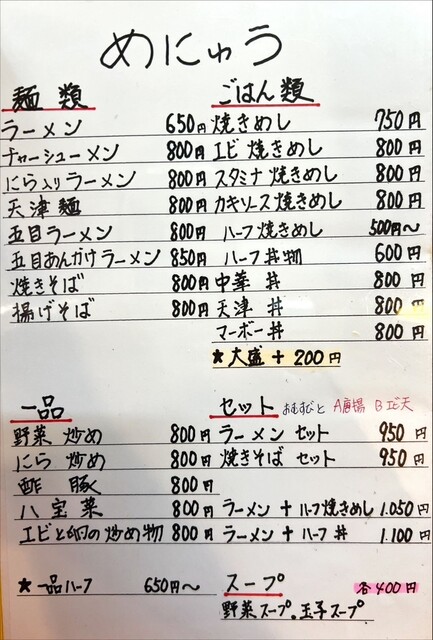 めにゅう
麺類
ラーメン 650円
チャーシューメン 800円
にら入りラーメン 800円
天津麺 800円
五目ラーメン 800円
五目あんかけラーメン 850円
焼きそば 800円
揚げそば 800円
ごはん類
焼きめし 750円
エビ焼きめし 800円
スタミナ焼きめし 800円
カキソース焼きめし 800円
ハーフ焼きめし 500円〜
ハーフ丼物 600円
中華丼 800円
天津丼 800円
マーボー丼 800円
★大盛+200円
一品
野菜炒め 800円
にら炒め 800円
酢豚 800円
八宝菜 800円
エビと卵の炒め物 800円
★一品ハーフ 650円〜
セット おむすびと A唐揚 Bエビ天
ラーメンセット 950円
焼きそばセット 950円
ラーメン+ハーフ焼きめし 1.050円
ラーメン+ハーフ丼 1.100円
スープ 各400円
野菜スープ.玉子スープ